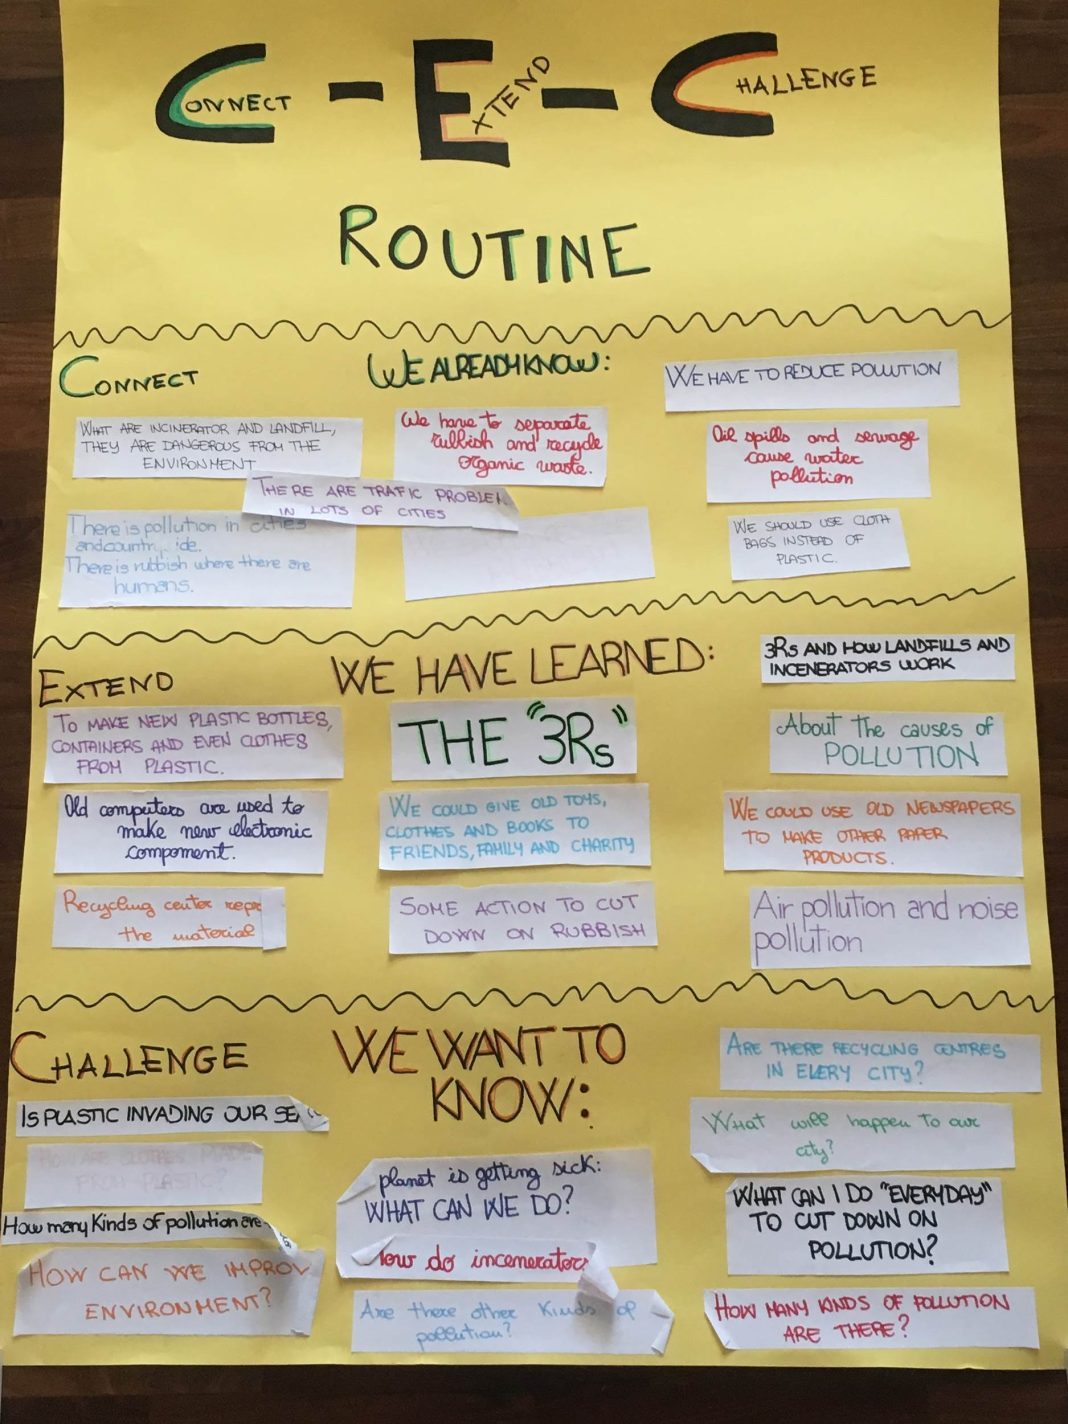 CONNECT - EXTEND - CHALLENGE
ROUTINE
CONNECT
WE ALREADY KNOW:
WE HAVE TO REDUCE POLLUTION
WHAT ARE INCINERATOR AND LANDFILL,
THEY ARE DANGEROUS FROM THE
ENVIRONMENT
We have to separate
rubbish and recycle
organic waste.
Oil spills and sewage
cause water
pollution
THERE ARE TRAFIC PROBLEM
IN LOTS OF CITIES
There is pollution in cities
and
There is rubbish where there are
humans.
WE SHOULD USE CLOTH
BAGS INSTEAD OF
PLASTIC.
EXTEND
WE HAVE LEARNED:
3Rs AND HOW LANDFILLS AND
INCENERATORS WORK
TO MAKE NEW PLASTIC BOTTLES,
CONTAINERS AND EVEN CLOTHES
FROM PLASTIC.
THE "3Rs"
About the causes of
POLLUTION
Old computers are used to
make new electronic
compoment.
WE COULD GIVE OLD TOYS,
CLOTHES AND BOOKS TO
FRIENDS, FAMILY AND CHARITY
WE COULD USE OLD NEWSPAPERS
TO MAKE OTHER PAPER
PRODUCTS.
Recycling center
the material
SOME ACTION TO CUT
DOWN ON RUBBISH
Air pollution and noise
pollution
CHALLENGE
WE WANT TO
KNOW:
ARE THERE RECYCLING CENTRES
IN EVERY CITY?
IS PLASTIC INVADING OUR
What will happen to our
city?
HOW ARE CLOTHES MADE
FROM PLASTIC?
planet is getting sick:
WHAT CAN WE DO?
WHAT CAN I DO "EVERYDAY"
TO CUT DOWN ON
POLLUTION?
How many Kinds of pollution are
How do incenerators
HOW CAN WE IMPROV
ENVIRONMENT?
Are there other Kinds of
pollution?
HOW MANY KINDS OF POLLUTION
ARE THERE?